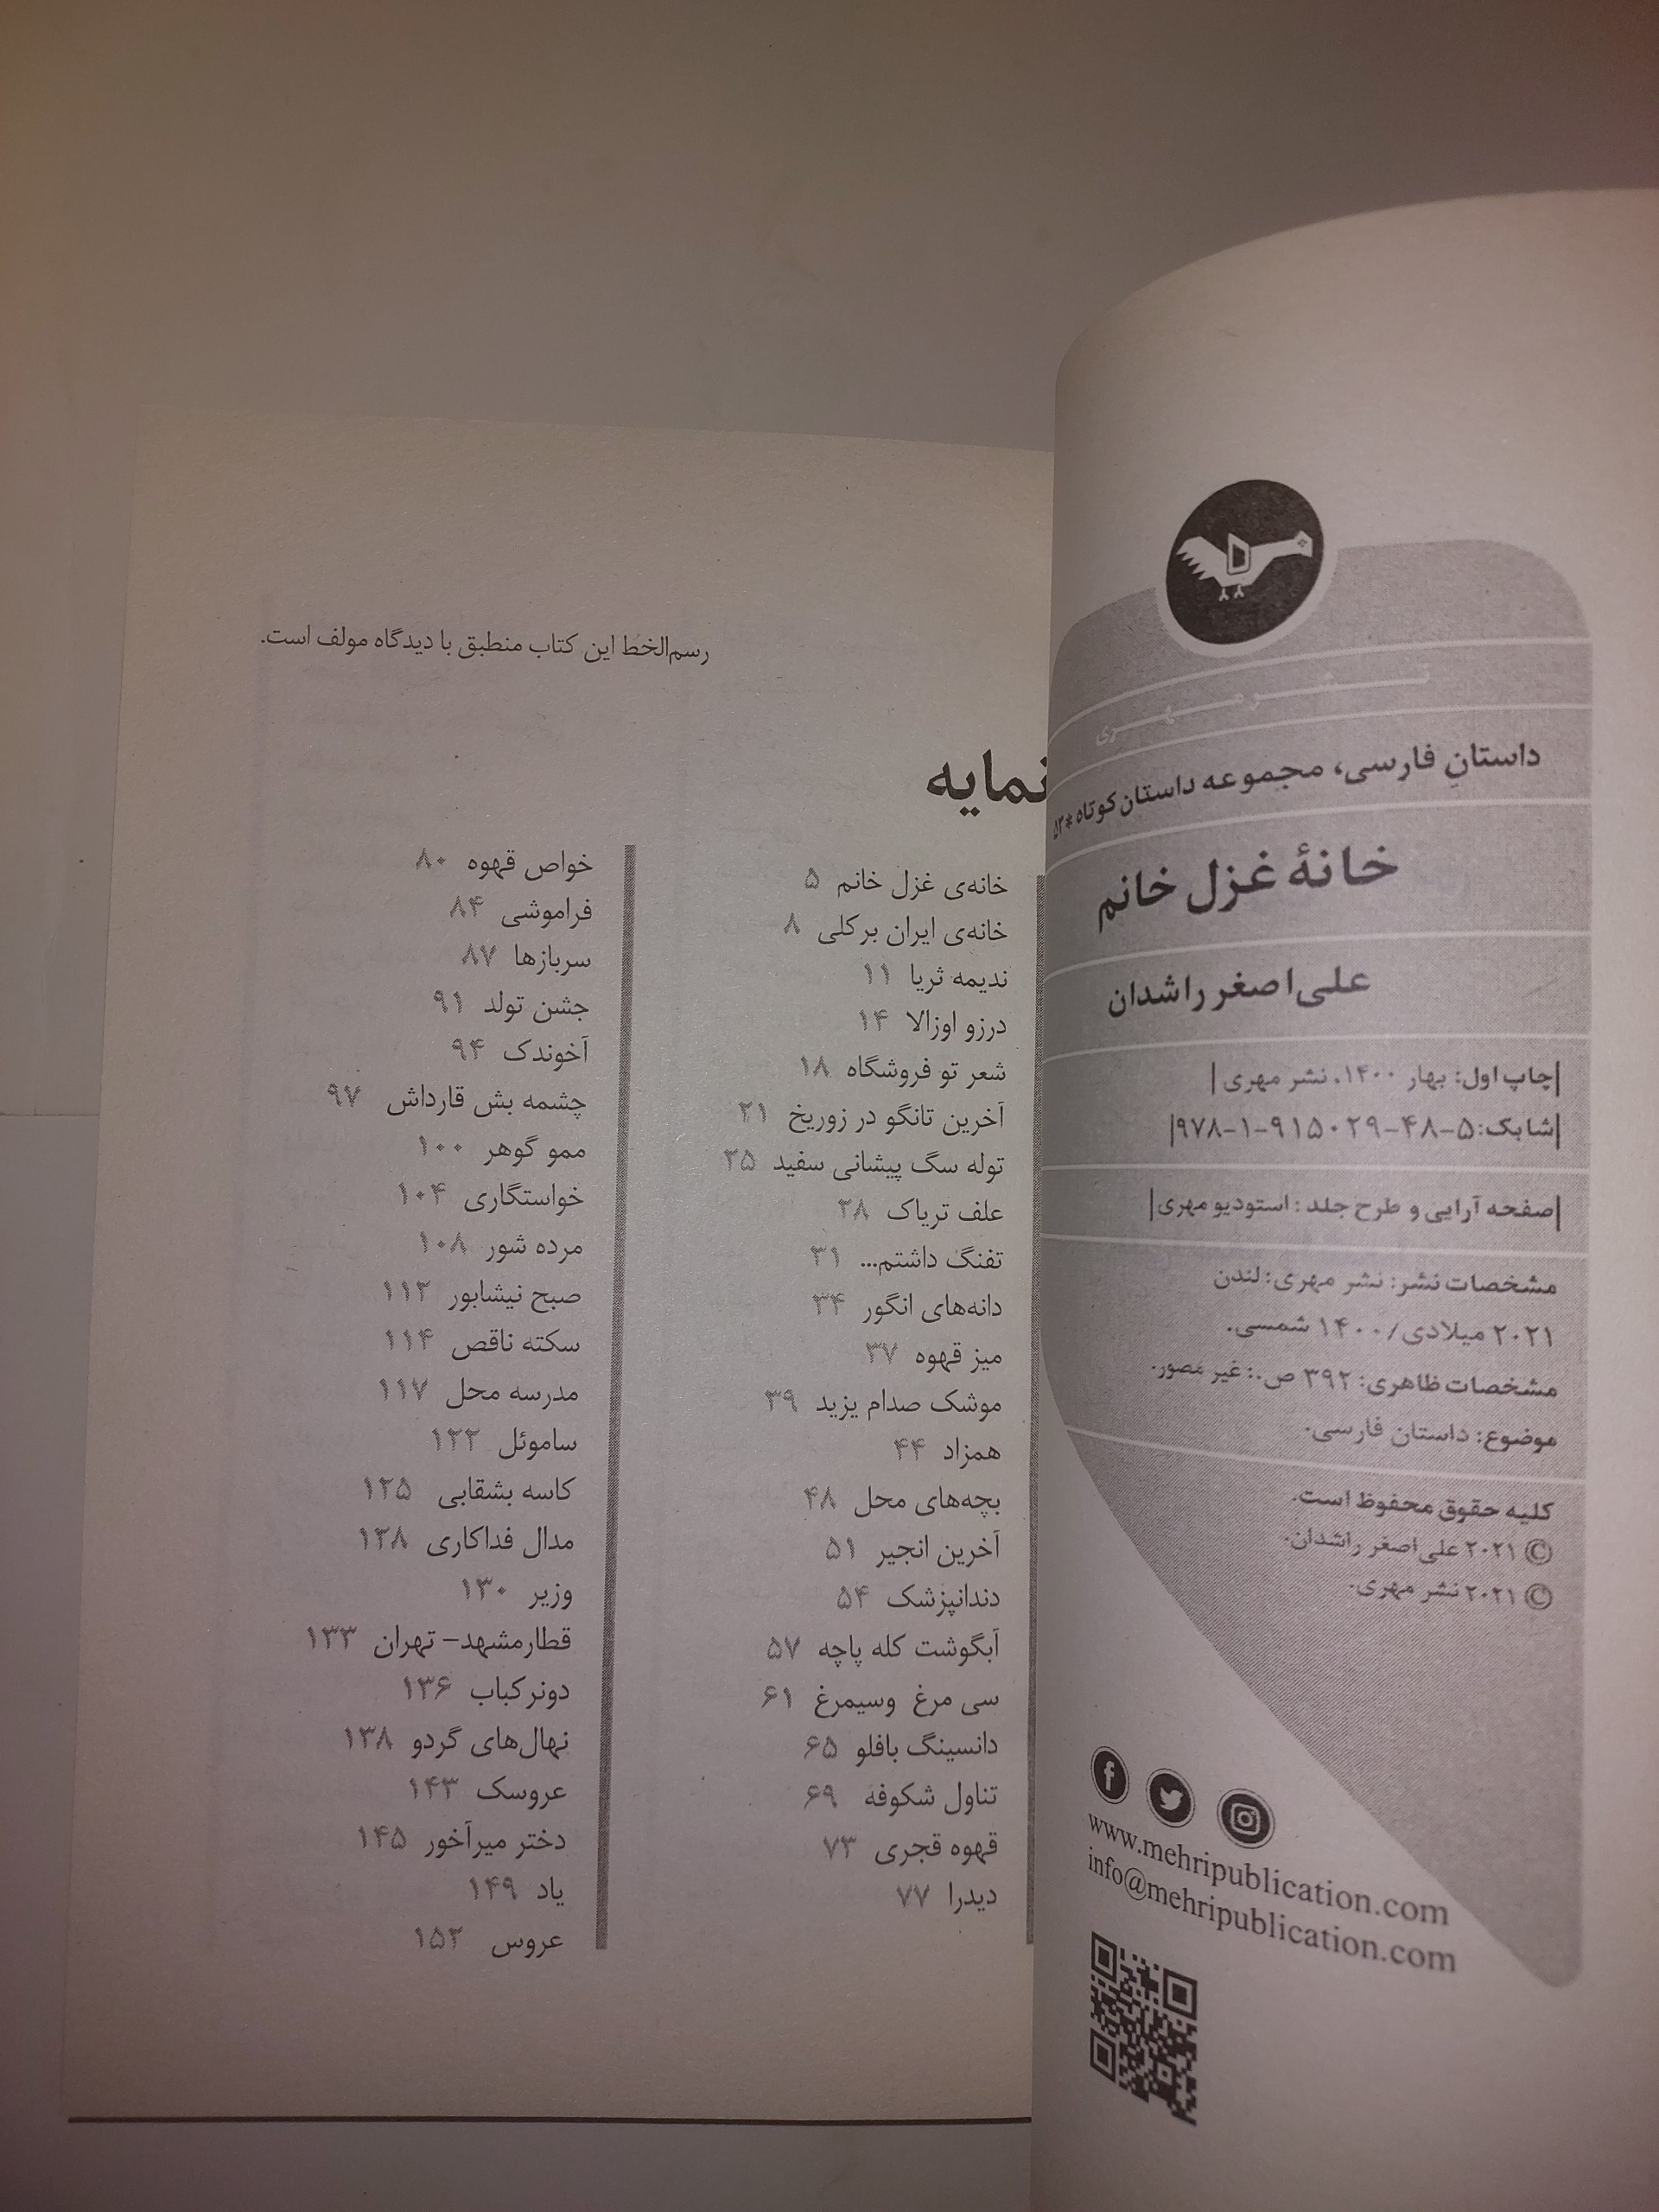 نشر مهری
داستانِ فارسی، مجموعه داستان کوتاه * ۵۲
خانهٔ غزل خانم
علی‌اصغر راشدان
|چاپ اول: بهار ۱۴۰۰، نشر مهری|
|شابک: ۵-۴۸-۹۱۵۰۲۹-۱-۹۷۸|
|صفحه آرایی و طرح جلد : استودیو مهری|
مشخصات نشر: نشر مهری: لندن
۲۰۲۱ میلادی/ ۱۴۰۰ شمسی.
مشخصات ظاهری: ۳۹۲ ص.: غیر مصور.
موضوع: داستان فارسی.
کلیه حقوق محفوظ است.
© ۲۰۲۱ علی‌اصغر راشدان.
© ۲۰۲۱ نشر مهری.
www.mehripublication.com
info@mehripublication.com
رسم‌الخط این کتاب منطبق با دیدگاه مولف است.
نمایه
خانه‌ی غزل خانم ۵
خانه‌ی ایران برکلی ۸
ندیمه ثریا ۱۱
درزو اوزالا ۱۴
شعر تو فروشگاه ۱۸
آخرین تانگو در زوریخ ۲۱
توله سگ پیشانی سفید ۲۵
علف تریاک ۲۸
تفنگ داشتم... ۳۱
دانه‌های انگور ۳۴
میز قهوه ۳۷
موشک صدام یزید ۳۹
همزاد ۴۴
بچه‌های محل ۴۸
آخرین انجیر ۵۱
دندانپزشک ۵۴
آبگوشت کله پاچه ۵۷
سی مرغ وسیمرغ ۶۱
دانسینگ بافلو ۶۵
تناول شکوفه ۶۹
قهوه قجری ۷۳
دیدرا ۷۷
خواص قهوه ۸۰
فراموشی ۸۴
سربازها ۸۷
جشن تولد ۹۱
آخوندک ۹۴
چشمه بش قارداش ۹۷
ممو گوهر ۱۰۰
خواستگاری ۱۰۴
مرده شور ۱۰۸
صبح نیشابور ۱۱۲
سکته ناقص ۱۱۴
مدرسه محل ۱۱۷
ساموئل ۱۲۲
کاسه بشقابی ۱۲۵
مدال فداکاری ۱۲۸
وزیر ۱۳۰
قطارمشهد- تهران ۱۳۳
دونرکباب ۱۳۶
نهال‌های گردو ۱۳۸
عروسک ۱۴۳
دختر میرآخور ۱۴۵
یاد ۱۴۹
عروس ۱۵۲